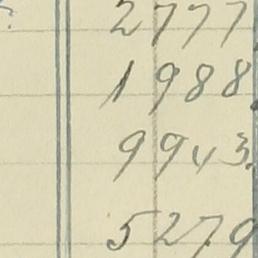 2777
1988.
9943.
5279